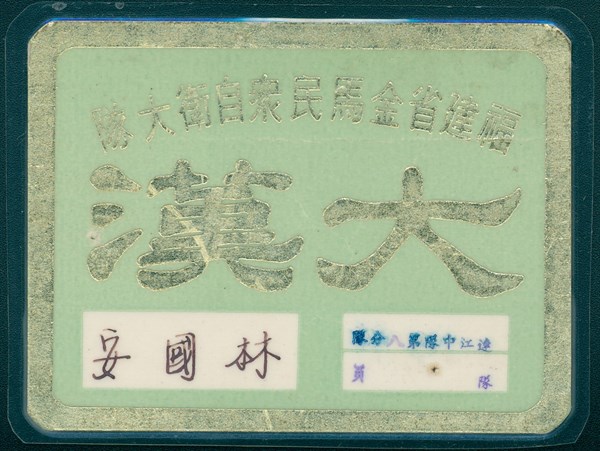 福建省金馬民衆自衛大隊
大漢
林國安
連江中隊第八分隊
隊員